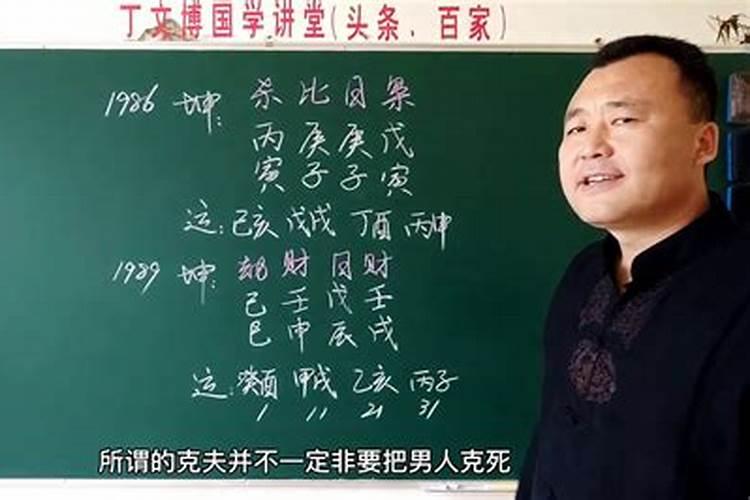 丁文博国学讲堂(头条、百家)
1986 坤: 杀比日枭
丙庚庚戊
寅子子寅
运:己亥 戊戌 丁酉 丙申
1989 坤: 劫财日财
己壬戊壬
巳申辰戌
运:癸酉 甲戌 乙亥 丙子
1 11 21 31
所谓的克夫并不一定非要把男人克死